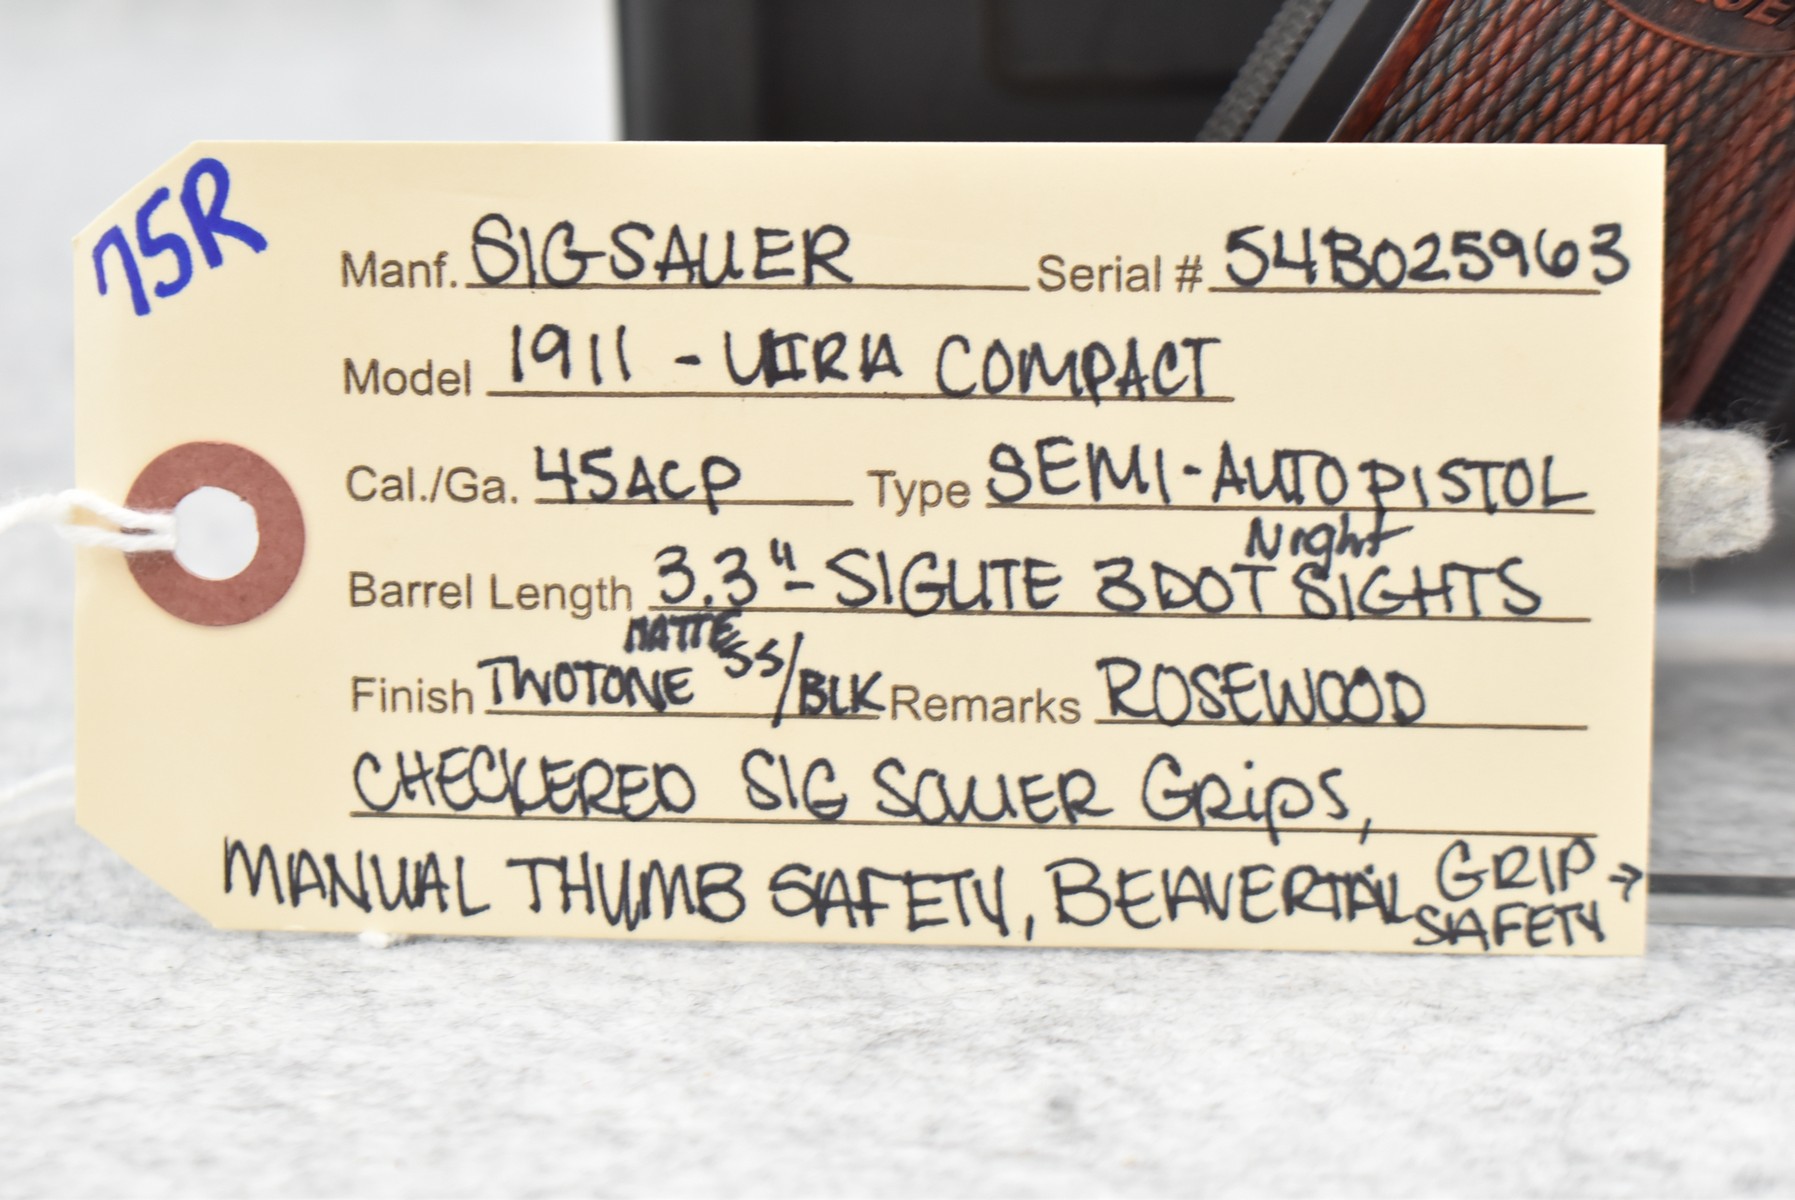 75R
Manf. SIG SAUER Serial # 54B025963
Model 1911 - ULTRA COMPACT
Cal./Ga. 45ACP Type SEMI-AUTO PISTOL
Barrel Length 3.3" - SIGLITE 3 DOT Night SIGHTS
Finish TWOTONE MATTE SS/BLK Remarks ROSEWOOD
CHECKERED SIG SAUER Grips,
MANUAL THUMB SAFETY, BEAVERTAIL GRIP SAFETY →